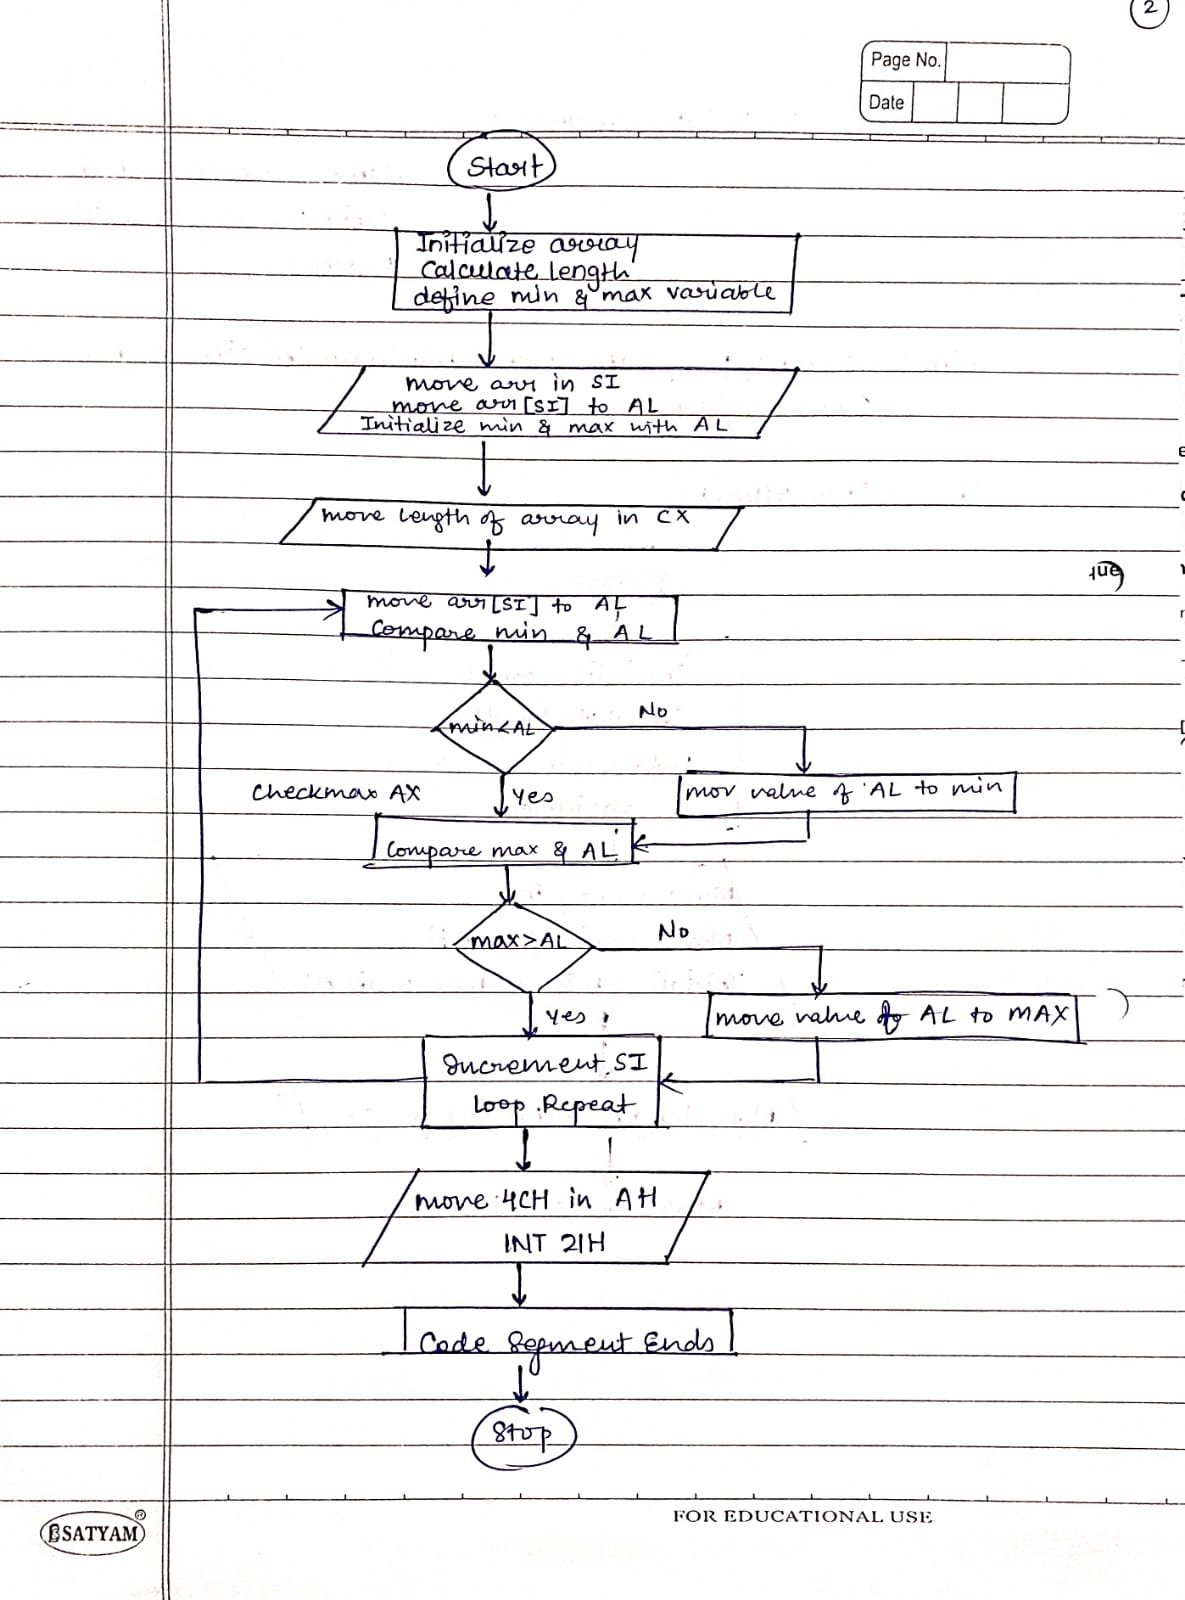 2
Page No.
Date
Start
Initialize array
Calculate length
define min & max variable
move arr in SI
move arr[SI] to AL
Initialize min & max with AL
move length of array in CX
move arr[SI] to AL
Compare min & AL
min<AL
No
Checkmax AX
Yes
mov value of AL to min
Compare max & AL
max>AL
No
Yes
move value of AL to MAX
Increment SI
Loop Repeat
move 4CH in AH
INT 21H
Code Segment Ends
Stop
FOR EDUCATIONAL USE
SATYAM